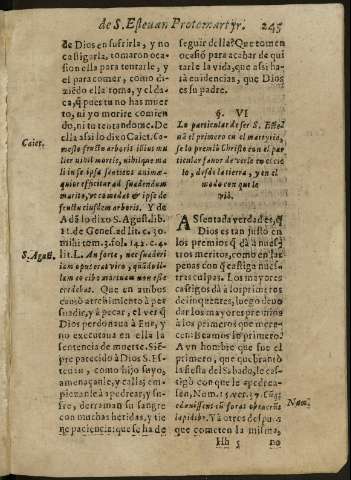 de S. Esteuan Protomartyr. 245
de Dios en sufrirla, y no
castigarla, tomaron oca-
sion ella para tentarle, y
el para comer, como di-
ziẽdo ella toma, y el da-
ca, q̃ pues tu no has muer
to, ni yo morire comien
do, ni tu tentandome. De
ella assi lo dixo Caiet. Co-
Caiet.
mesto fructu arboris illius mu
lier
lo in se ipsa sentiens anima-
quior efficitur ad suadendum
marito, vt comedat & ipse de
fructu eiusdem arboris. Y de
Adã lo dixo S. Agust. lib.
11. de Genes. ad lit. c. 30.
mihi tom. 3. fol. 142. c. 4.
S. Agust.
lit. L. An forte, nec suaderi
iam opus erat viro, quãdo il-
lam eo cibo mortuam non esse
cernebat. Que en ambos
causò atreuimiento à per
suadir, y à pecar, el ver q̃
Dios perdonaua à Eua, y
no executaua en ella la
sentencia de muerte. Siẽ-
pre parecido à Dios S. Es-
teuan, como hijo suyo,
amenaçanle, y calla; em-
piezanle à apedrear, y su-
fre, derraman su sangre
con muchas heridas, y tie
ne paciencia: que se ha de
seguir della? Que tomen
ocasiõ para acabar de qui
tarle la vida, que assi ha-
rà euidencias, que Dios
es su padre.
§. VI
Lo particular de ser S. Esteuã
uã el primero en el martyrio,
se lo premiò Christo con el par
ticular fauor de verle en el cie
lo, desde la tierra, y en el
modo con que le
viò.
ASsentada verdad es, q̃
Dios es tan justo en
los premios q̃ dà à nuẽs
meritos, como en las
penas con q̃ castiga nues
tras culpas. Los mayores
castigos dà à los primeros
delinquentes, luego deue
dar los mayores premios
à los primeros que mere-
cen: Seamos lo primero.
A vn hombre que fue el
primero, que quebrantò
la fiesta del Sabado, le cas-
tigò con que le apedrea-
sen, Num. 15. ver. 37.
Num.
foras obruerũt
lapidibus. Y à otros despues
que cometen la misma,
Hh 5 no